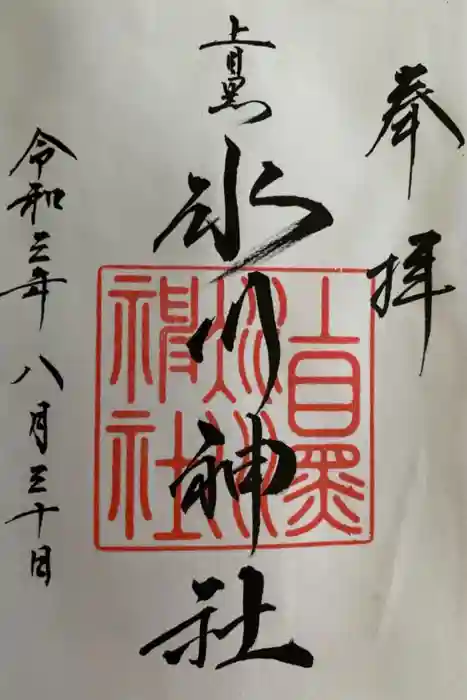 奉拝
上目黒
氷川神社
上目黒氷川神社
令和三年八月三十日